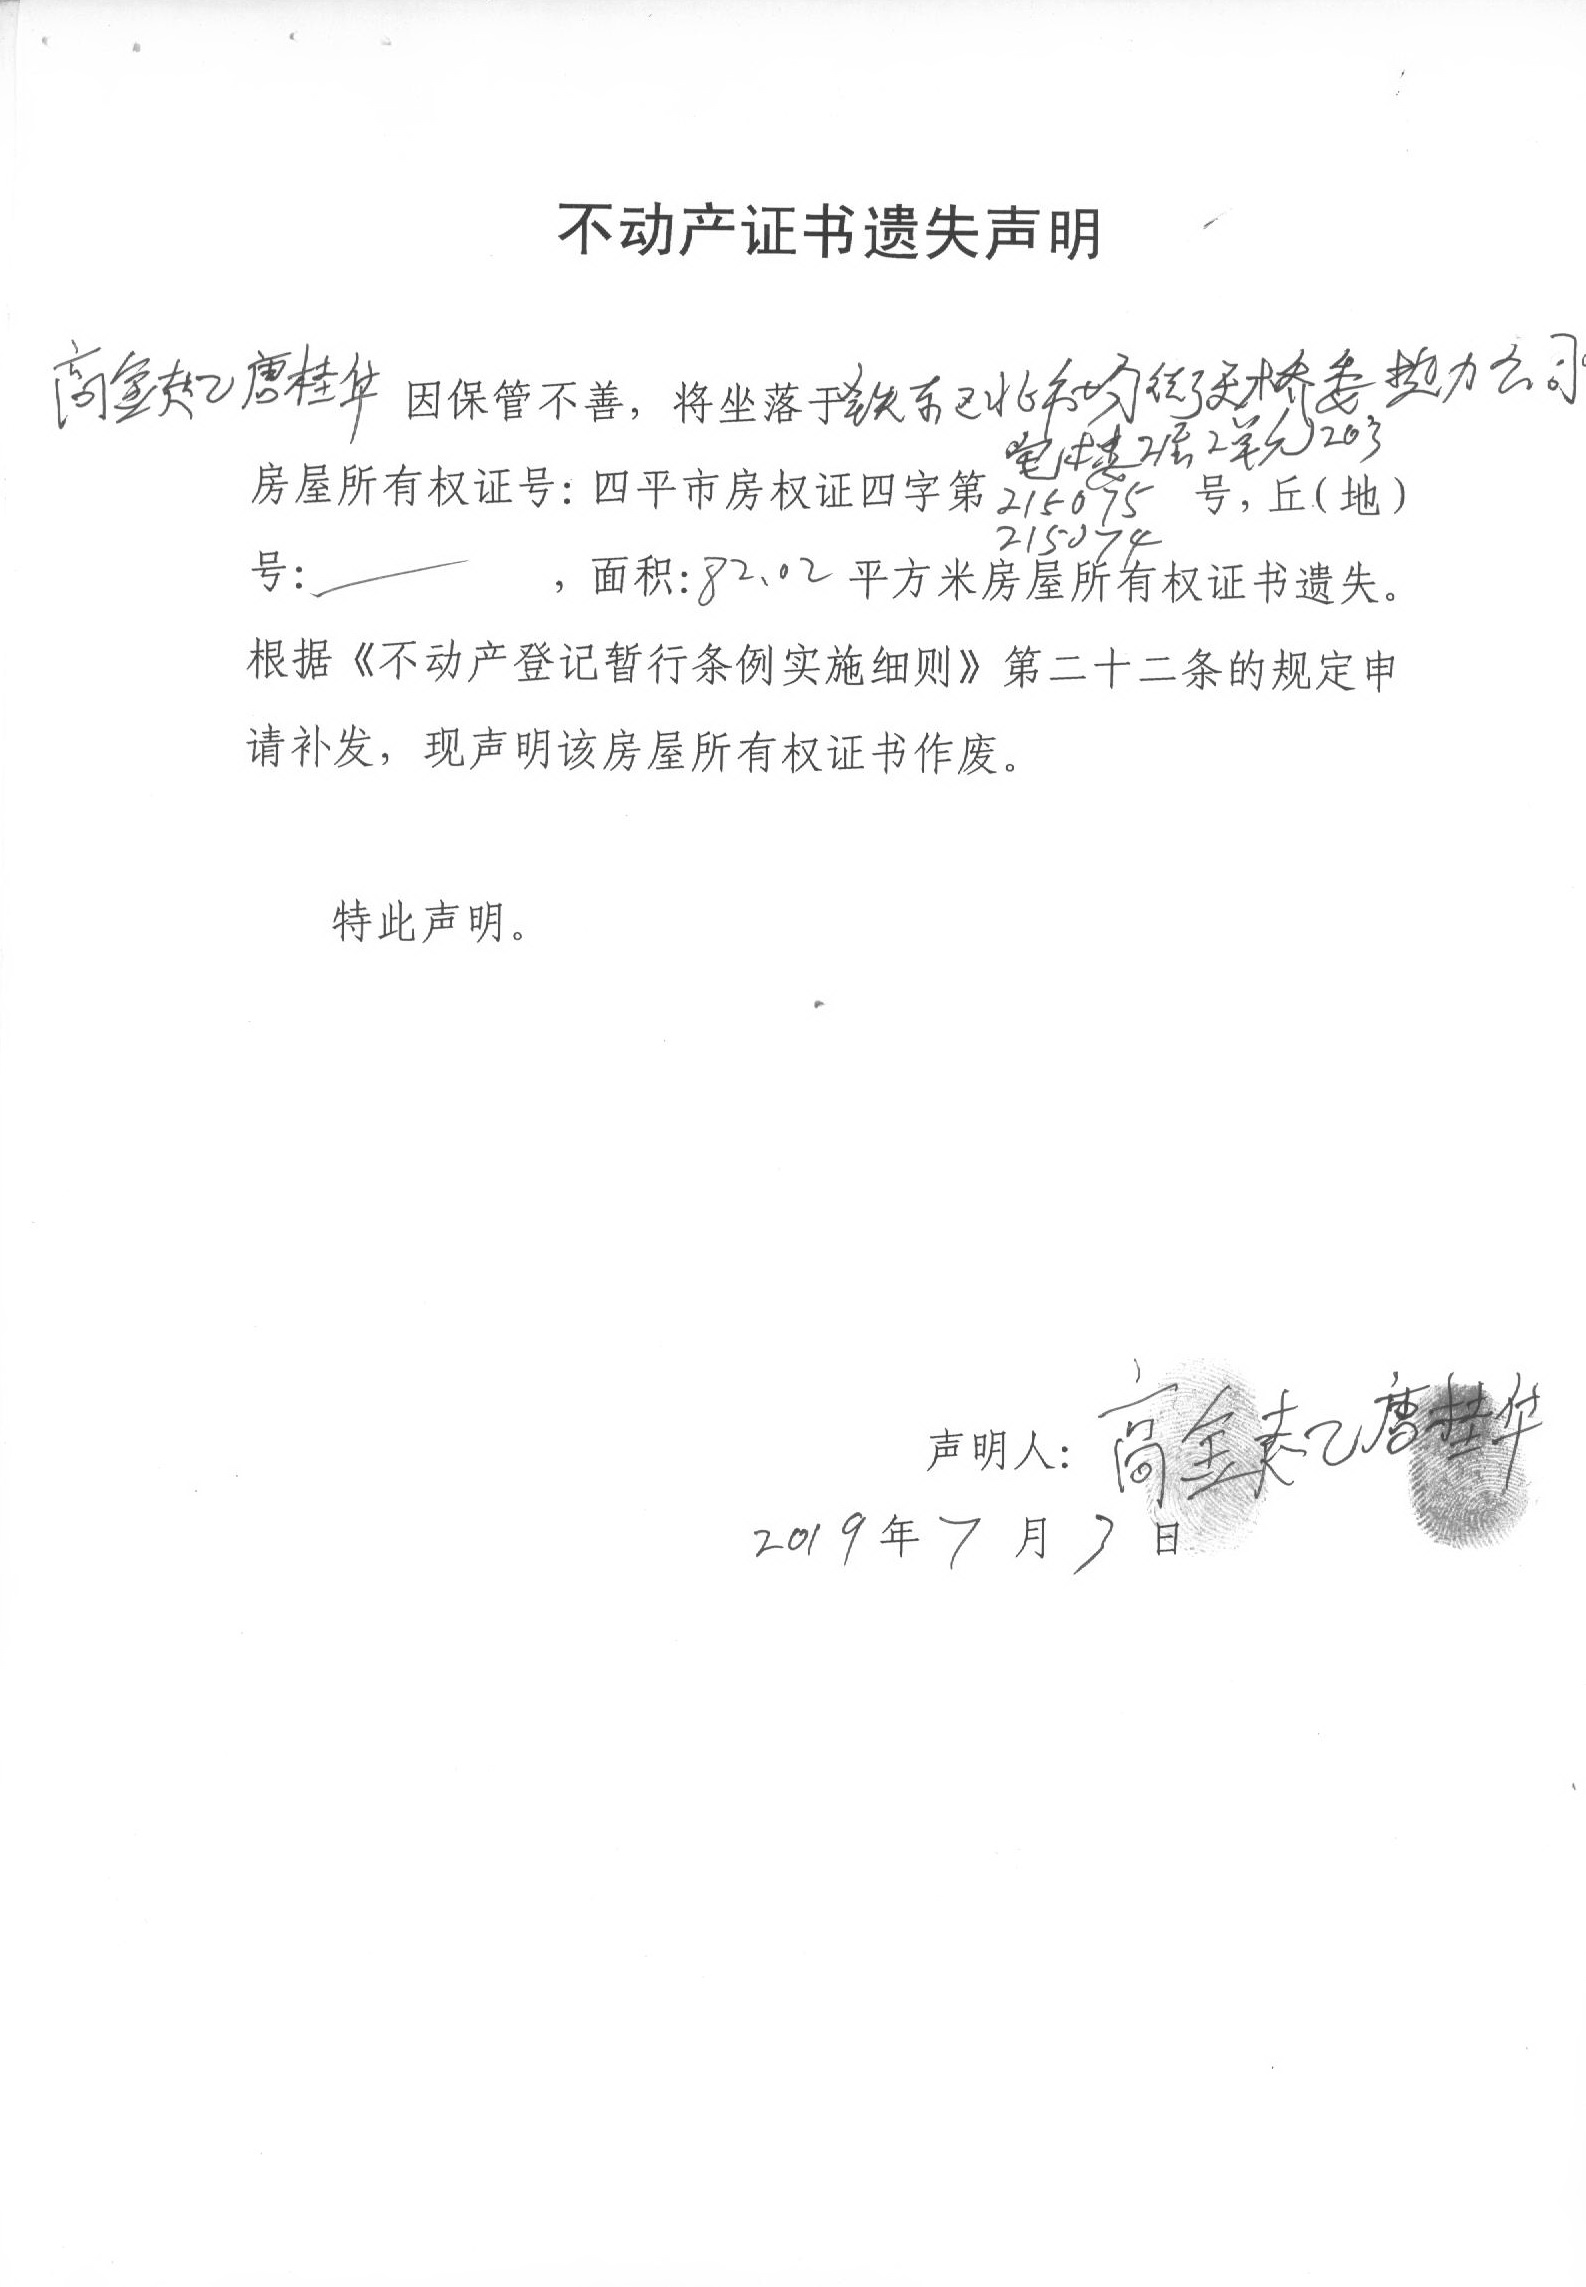 不动产证书遗失声明
高金 唐桂华 因保管不善，将坐落于铁东区北 街天桥委热力公司
宅楼2层2单元203
房屋所有权证号：四平市房权证四字第 215075 号，丘（地）
215074
号： ，面积：82.02 平方米房屋所有权证书遗失。
根据《不动产登记暂行条例实施细则》第二十二条的规定申
请补发，现声明该房屋所有权证书作废。
特此声明。
声明人：高金 唐桂华
2019年7月3日